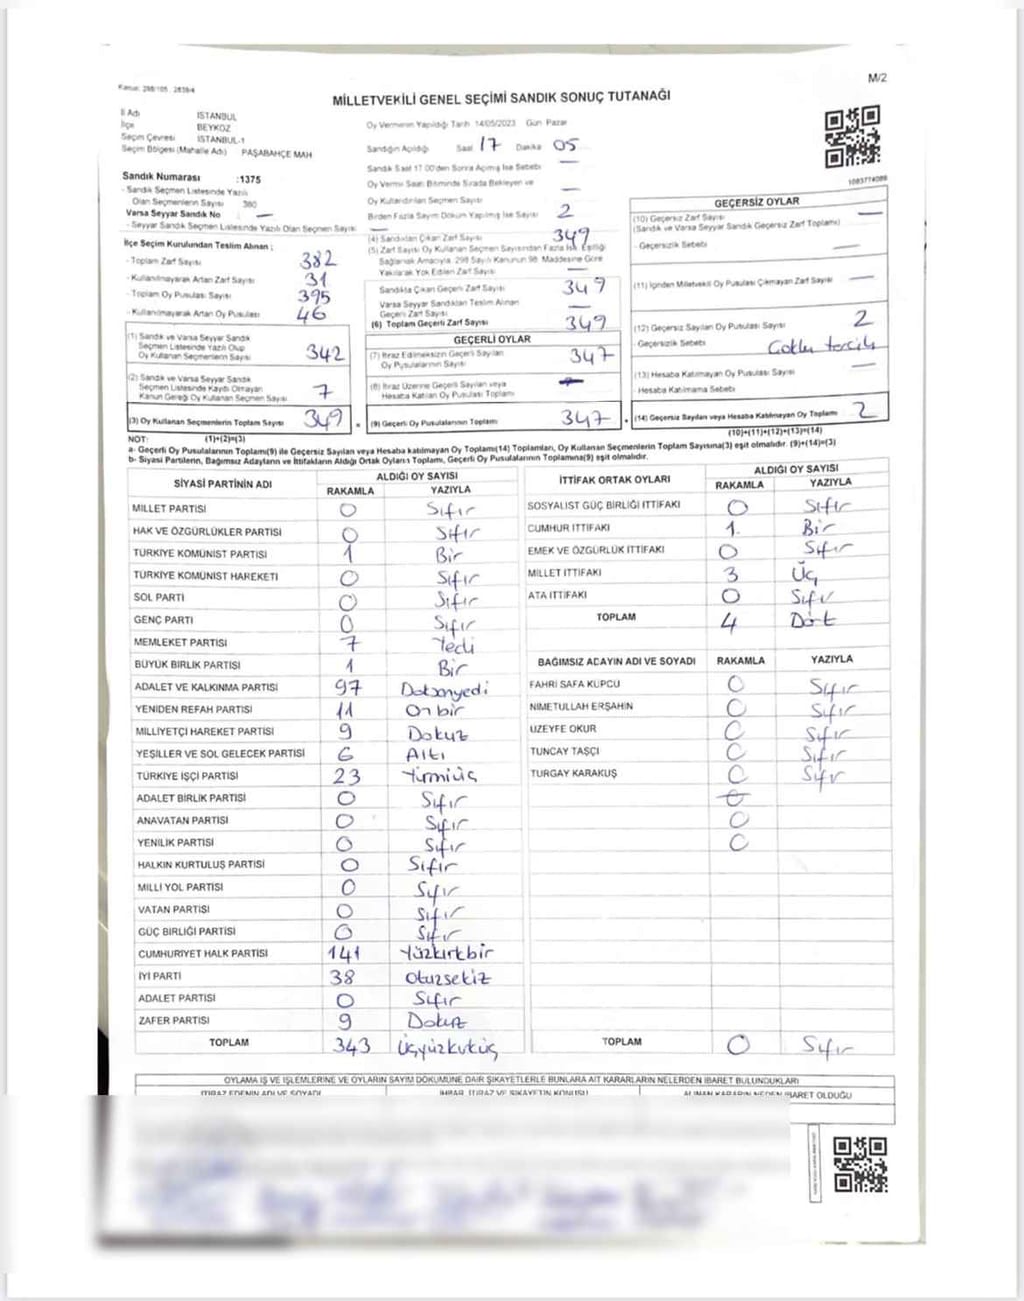 M/2
MİLLETVEKİLİ GENEL SEÇİMİ SANDIK SONUÇ TUTANAĞI
İl Adı İSTANBUL
İlçe BEYKOZ
Seçim Çevresi İSTANBUL-1
Seçim Bölgesi (Mahalle Adı) PAŞABAHÇE MAH
Sandık Numarası :1375
- Sandık Seçmen Listesinde Yazılı
Olan Seçmenlerin Sayısı 380
Varsa Seyyar Sandık No —
- Seyyar Sandık Seçmen Listesinde Yazılı Olan Seçmen Sayısı —
İlçe Seçim Kurulundan Teslim Alınan ;
- Toplam Zarf Sayısı 382
- Kullanılmayarak Artan Zarf Sayısı 31
- Toplam Oy Pusulası Sayısı 395
- Kullanılmayarak Artan Oy Pusulası 46
(1) Sandık ve Varsa Seyyar Sandık
Seçmen Listesinde Yazılı Olup
Oy Kullanan Seçmenlerin Sayısı 342
(2) Sandık ve Varsa Seyyar Sandık
Seçmen Listesinde Kayıtlı Olmayan
Kanun Gereği Oy Kullanan Seçmen Sayısı 7
(3) Oy Kullanan Seçmenlerin Toplam Sayısı 349
(1)+(2)=(3)
Oy Vermenin Yapıldığı Tarih 14/05/2023 Gün Pazar
Sandığın Açıldığı Saat 17 Dakika 05
Sandık Saat 17.00'den Sonra Açılmış İse Sebebi —
Oy Verme Saati Bitiminde Sırada Bekleyen ve
Oy Kullandırılan Seçmen Sayısı —
Birden Fazla Sayım Döküm Yapılmış İse Sayısı 2
(4) Sandıktan Çıkan Zarf Sayısı 349
(5) Zarf Sayısı Oy Kullanan Seçmen Sayısından Fazla İse, Eşitliği
Sağlamak Amacıyla, 298 Sayılı Kanunun 98. Maddesine Göre
Yakılarak Yok Edilen Zarf Sayısı —
Sandıkta Çıkan Geçerli Zarf Sayısı 349
Varsa Seyyar Sandıktan Teslim Alınan
Geçerli Zarf Sayısı —
(6) Toplam Geçerli Zarf Sayısı 349
GEÇERLİ OYLAR
(7) İtiraz Edilmeksizin Geçerli Sayılan
Oy Pusulalarının Sayısı 347
(8) İtiraz Üzerine Geçerli Sayılan veya
Hesaba Katılan Oy Pusulası Toplamı —
(9) Geçerli Oy Pusulalarının Toplamı 347
1083774089
GEÇERSİZ OYLAR
(10) Geçersiz Zarf Sayısı —
(Sandık ve Varsa Seyyar Sandık Geçersiz Zarf Toplamı)
- Geçersizlik Sebebi —
(11) İçinden Milletvekili Oy Pusulası Çıkmayan Zarf Sayısı —
(12) Geçersiz Sayılan Oy Pusulası Sayısı 2
- Geçersizlik Sebebi Çoklu tercih
(13) Hesaba Katılmayan Oy Pusulası Sayısı —
- Hesaba Katılmama Sebebi —
(14) Geçersiz Sayılan veya Hesaba Katılmayan Oy Toplamı 2
(10)+(11)+(12)+(13)=(14)
NOT:
a- Geçerli Oy Pusulalarının Toplamı(9) ile Geçersiz Sayılan veya Hesaba katılmayan Oy Toplamı(14) Toplamları, Oy Kullanan Seçmenlerin Toplam Sayısına(3) eşit olmalıdır. (9)+(14)=(3)
b- Siyasi Partilerin, Bağımsız Adayların ve İttifakların Aldığı Ortak Oyların Toplamı, Geçerli Oy Pusulalarının Toplamına(9) eşit olmalıdır.
SİYASİ PARTİNİN ADI ALDIĞI OY SAYISI
RAKAMLA YAZIYLA
MİLLET PARTİSİ 0 Sıfır
HAK VE ÖZGÜRLÜKLER PARTİSİ 0 Sıfır
TÜRKİYE KOMÜNİST PARTİSİ 1 Bir
TÜRKİYE KOMÜNİST HAREKETİ 0 Sıfır
SOL PARTİ 0 Sıfır
GENÇ PARTİ 0 Sıfır
MEMLEKET PARTİSİ 7 Yedi
BÜYÜK BİRLİK PARTİSİ 1 Bir
ADALET VE KALKINMA PARTİSİ 97 Doksanyedi
YENİDEN REFAH PARTİSİ 11 Onbir
MİLLİYETÇİ HAREKET PARTİSİ 9 Dokuz
YEŞİLLER VE SOL GELECEK PARTİSİ 6 Altı
TÜRKİYE İŞÇİ PARTİSİ 23 Yirmiüç
ADALET BİRLİK PARTİSİ 0 Sıfır
ANAVATAN PARTİSİ 0 Sıfır
YENİLİK PARTİSİ 0 Sıfır
HALKIN KURTULUŞ PARTİSİ 0 Sıfır
MİLLİ YOL PARTİSİ 0 Sıfır
VATAN PARTİSİ 0 Sıfır
GÜÇ BİRLİĞİ PARTİSİ 0 Sıfır
CUMHURİYET HALK PARTİSİ 141 Yüzkırkbir
İYİ PARTİ 38 Otuzsekiz
ADALET PARTİSİ 0 Sıfır
ZAFER PARTİSİ 9 Dokuz
TOPLAM 343 Üçyüzkırküç
İTTİFAK ORTAK OYLARI ALDIĞI OY SAYISI
RAKAMLA YAZIYLA
SOSYALİST GÜÇ BİRLİĞİ İTTİFAKI 0 Sıfır
CUMHUR İTTİFAKI 1. Bir
EMEK VE ÖZGÜRLÜK İTTİFAKI 0 Sıfır
MİLLET İTTİFAKI 3 Üç
ATA İTTİFAKI 0 Sıfır
TOPLAM 4 Dört
BAĞIMSIZ ADAYIN ADI VE SOYADI RAKAMLA YAZIYLA
FAHRİ SAFA KÜPCÜ 0 Sıfır
NİMETULLAH ERŞAHİN 0 Sıfır
ÜZEYFE OKUR 0 Sıfır
TUNCAY TAŞÇI 0 Sıfır
TURGAY KARAKUŞ 0 Sıfır
0
0
0
TOPLAM 0 Sıfır
OYLAMA İŞ VE İŞLEMLERİNE VE OYLARIN SAYIM DÖKÜMÜNE DAİR ŞİKAYETLERLE BUNLARA AİT KARARLARIN NELERDEN İBARET BULUNDUKLARI
İTİRAZ EDENİN ADI VE SOYADI İHBAR, İTİRAZ VE ŞİKAYETİN KONUSU ALINAN KARARIN NEDEN İBARET OLDUĞU